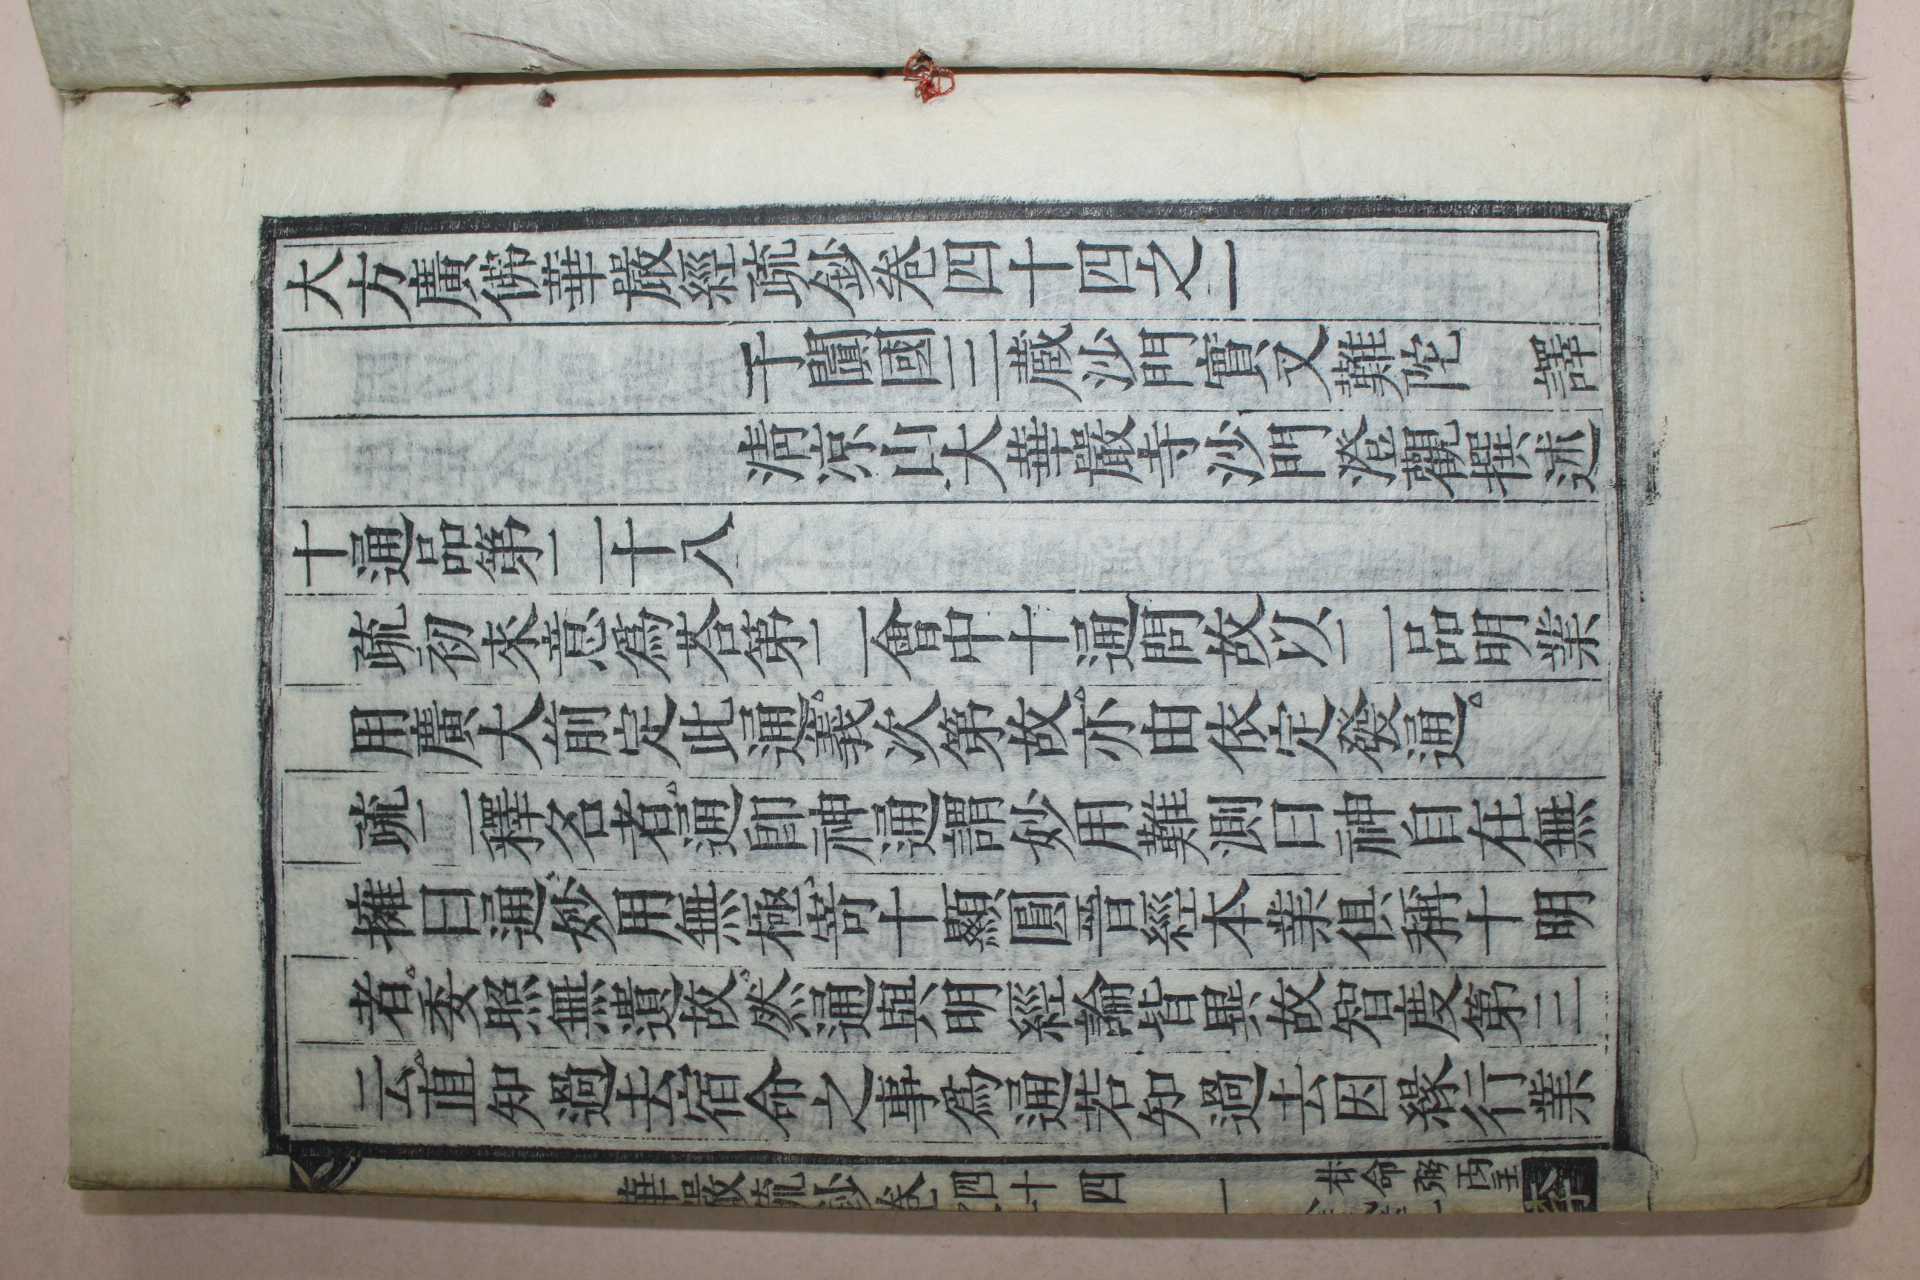 大方廣佛華嚴經疏鈔卷四十四之一
于闐國三藏沙門實叉難陀 譯
清凉山大華嚴寺沙門澄觀撰述
十通品第二十八
疏初來意爲答第二會中十通問故以二品明業
用廣大前定此通義次第故亦由依定發通
疏二釋名者通即神通謂妙用難測曰神自在無
擁曰通妙用無極寄十顯圓晉經本業俱稱十明
者委照無遺故然通與明經論皆異故智度第三
云直知過去宿命之事爲通若知過去因緣行業
華嚴疏鈔卷四十四 一